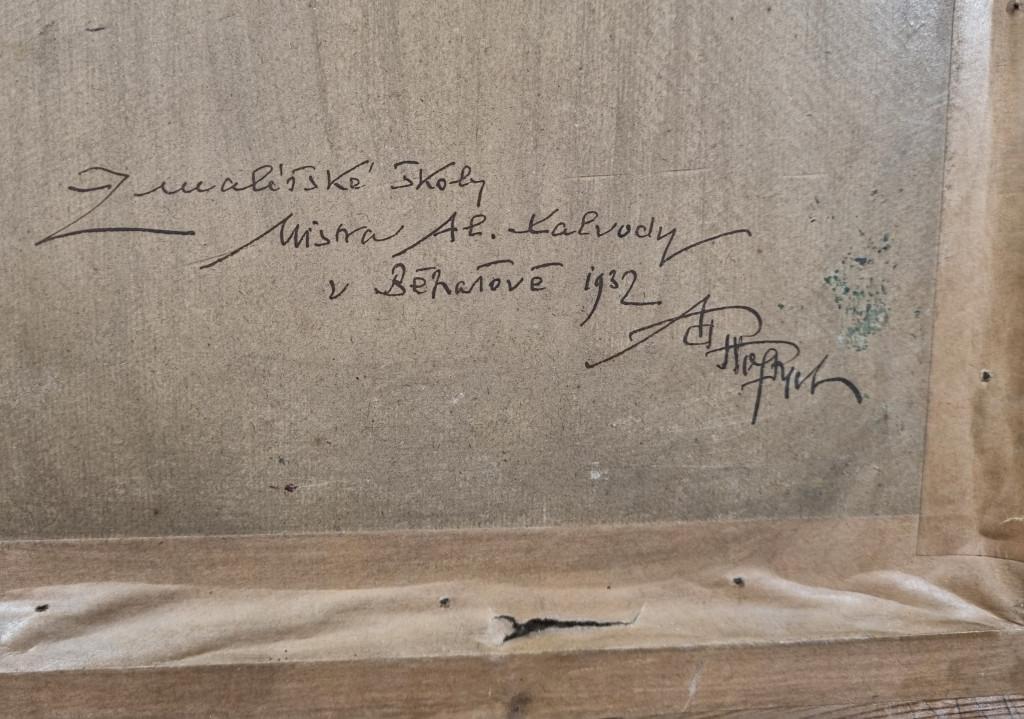 Z malířské školy
Mistra Al. Kalvody
v Běhařově 1932